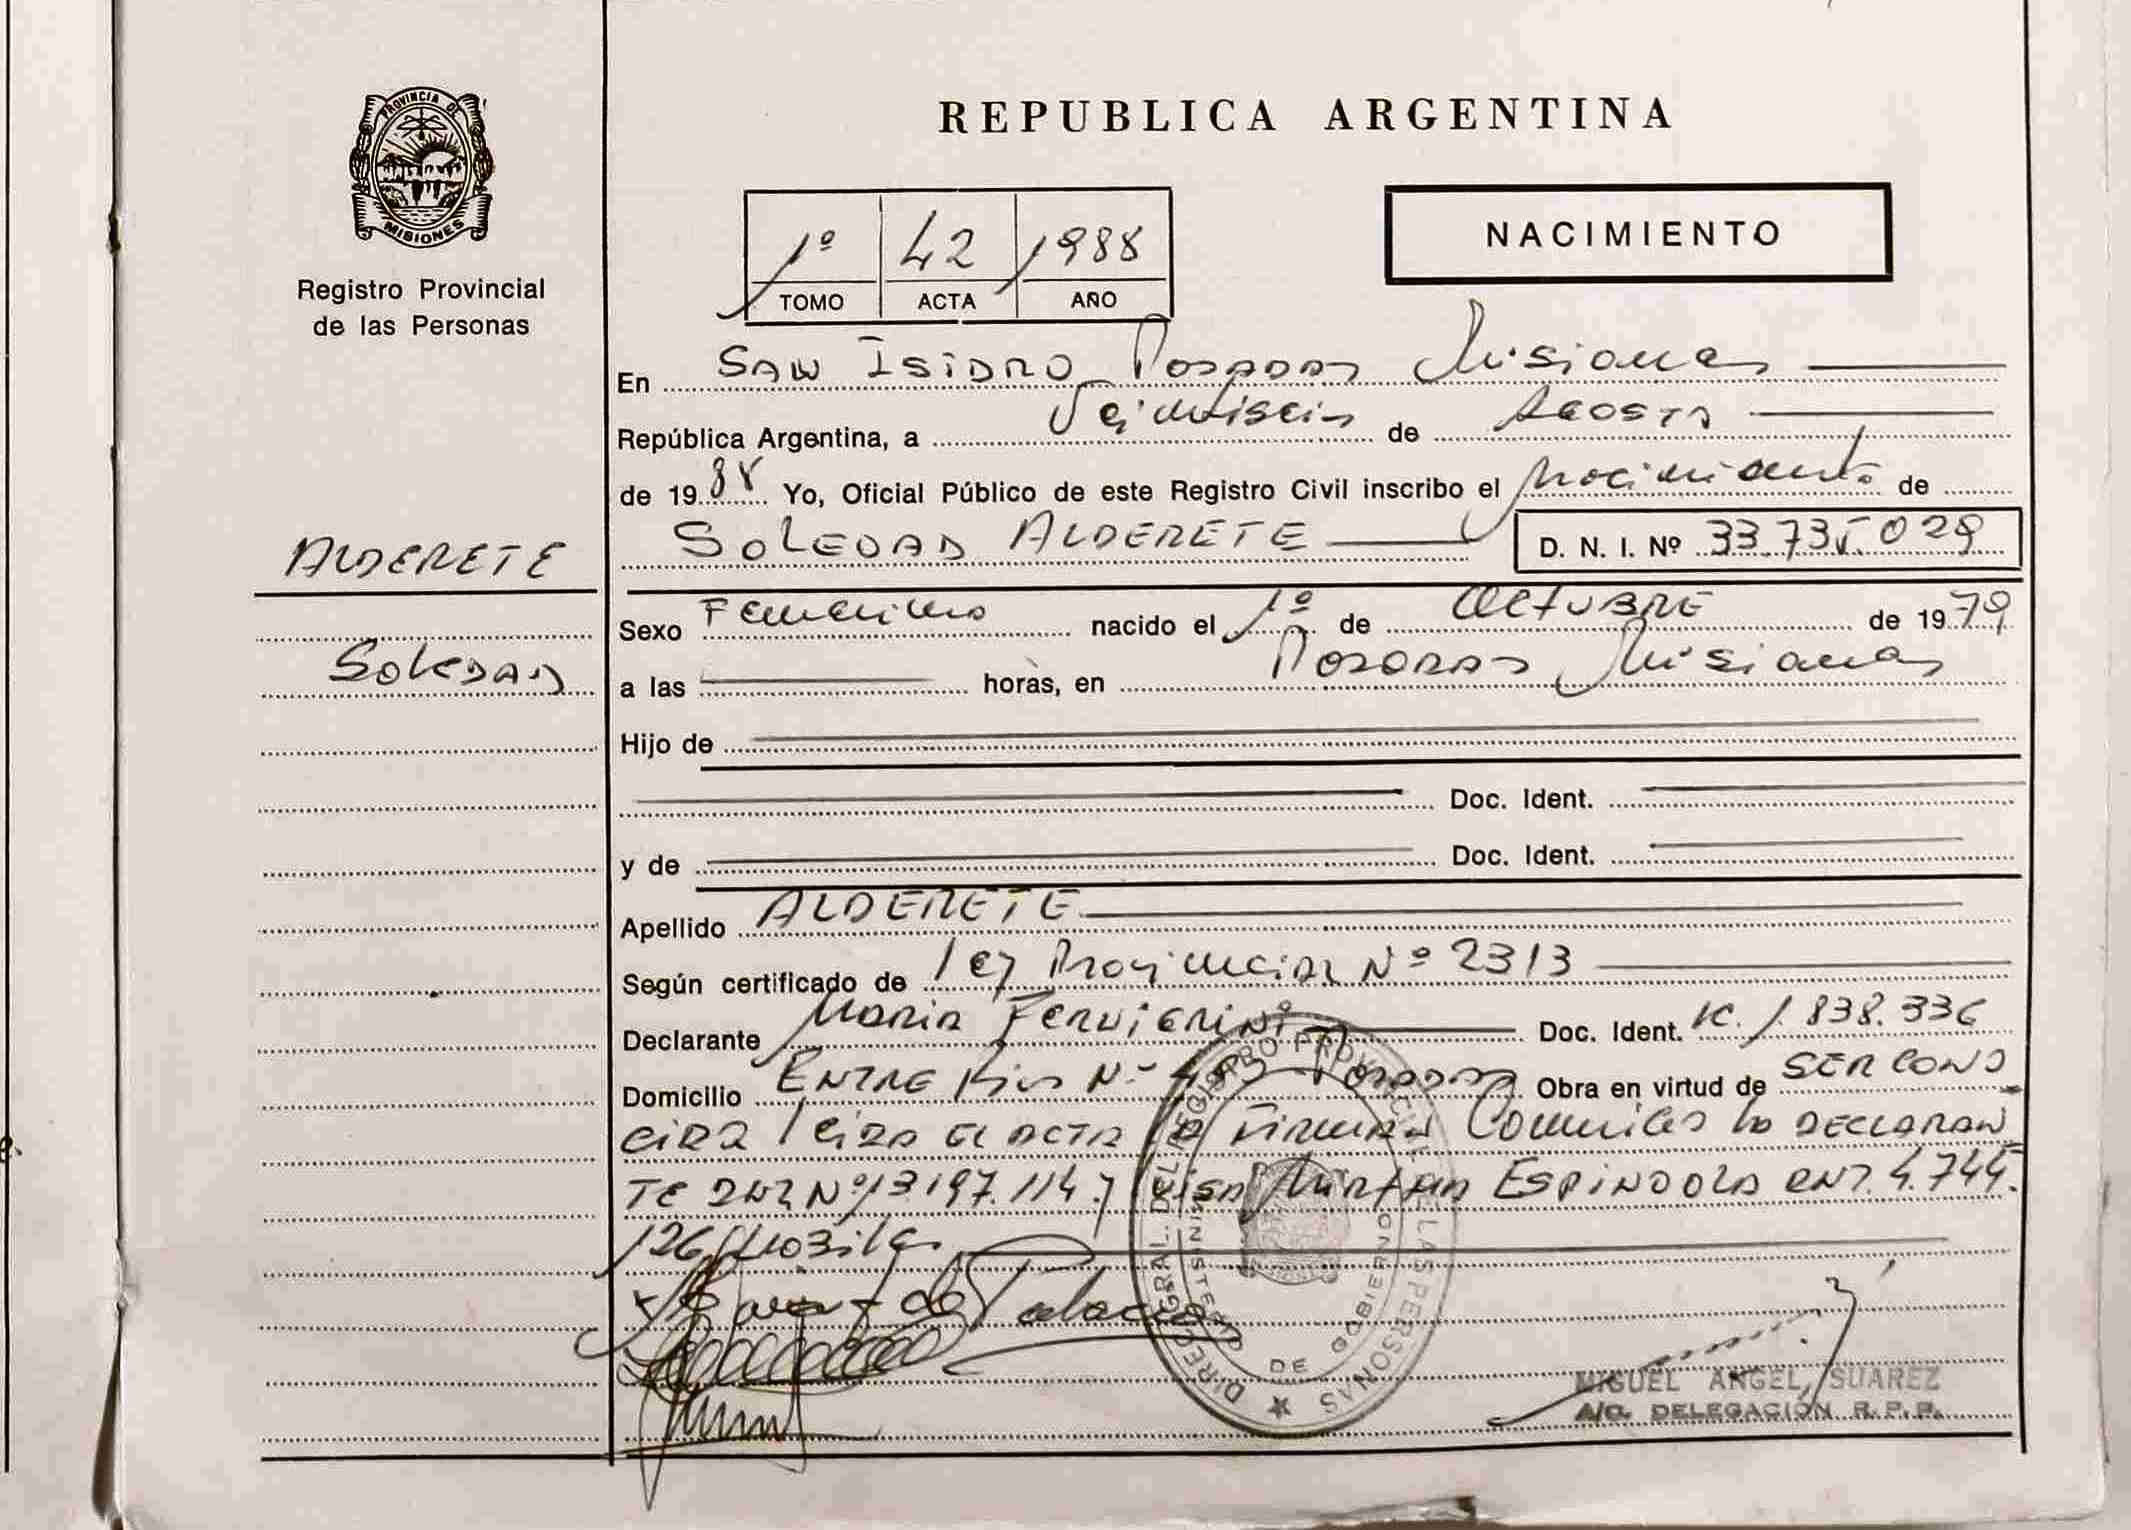 PROVINCIA DE
MISIONES
Registro Provincial
de las Personas
REPUBLICA ARGENTINA
1º 42 1988
TOMO ACTA AÑO
NACIMIENTO
En SAN ISIDRO Posadas Misiones
República Argentina, a Veintiseis de Agosto
de 1988 Yo, Oficial Público de este Registro Civil inscribo el nacimiento de
SOLEDAD ALDERETE D. N. I. Nº 33.735.029
ALDERETE
Soledad
Sexo Femenino nacido el 1º de OCTUBRE de 1979
a las horas, en Posadas Misiones
Hijo de
Doc. Ident.
y de Doc. Ident.
Apellido ALDERETE
Según certificado de Ley Provincial Nº 2313
Declarante Maria Doc. Ident. 1.838.336
Domicilio ENTRE Rios N.- Posadas Obra en virtud de SER CONO
CIDA Leida el acta la Firman Conmigo la DECLARAN
TE Nº 13197.114 y ESPINDOLA 4.745.
126
DIREC. GRAL. DEL REGISTRO PROVINCIAL DE LAS PERSONAS
MINISTERIO DE GOBIERNO
MIGUEL ANGEL SUAREZ
A/C. DELEGACION R. P. P.